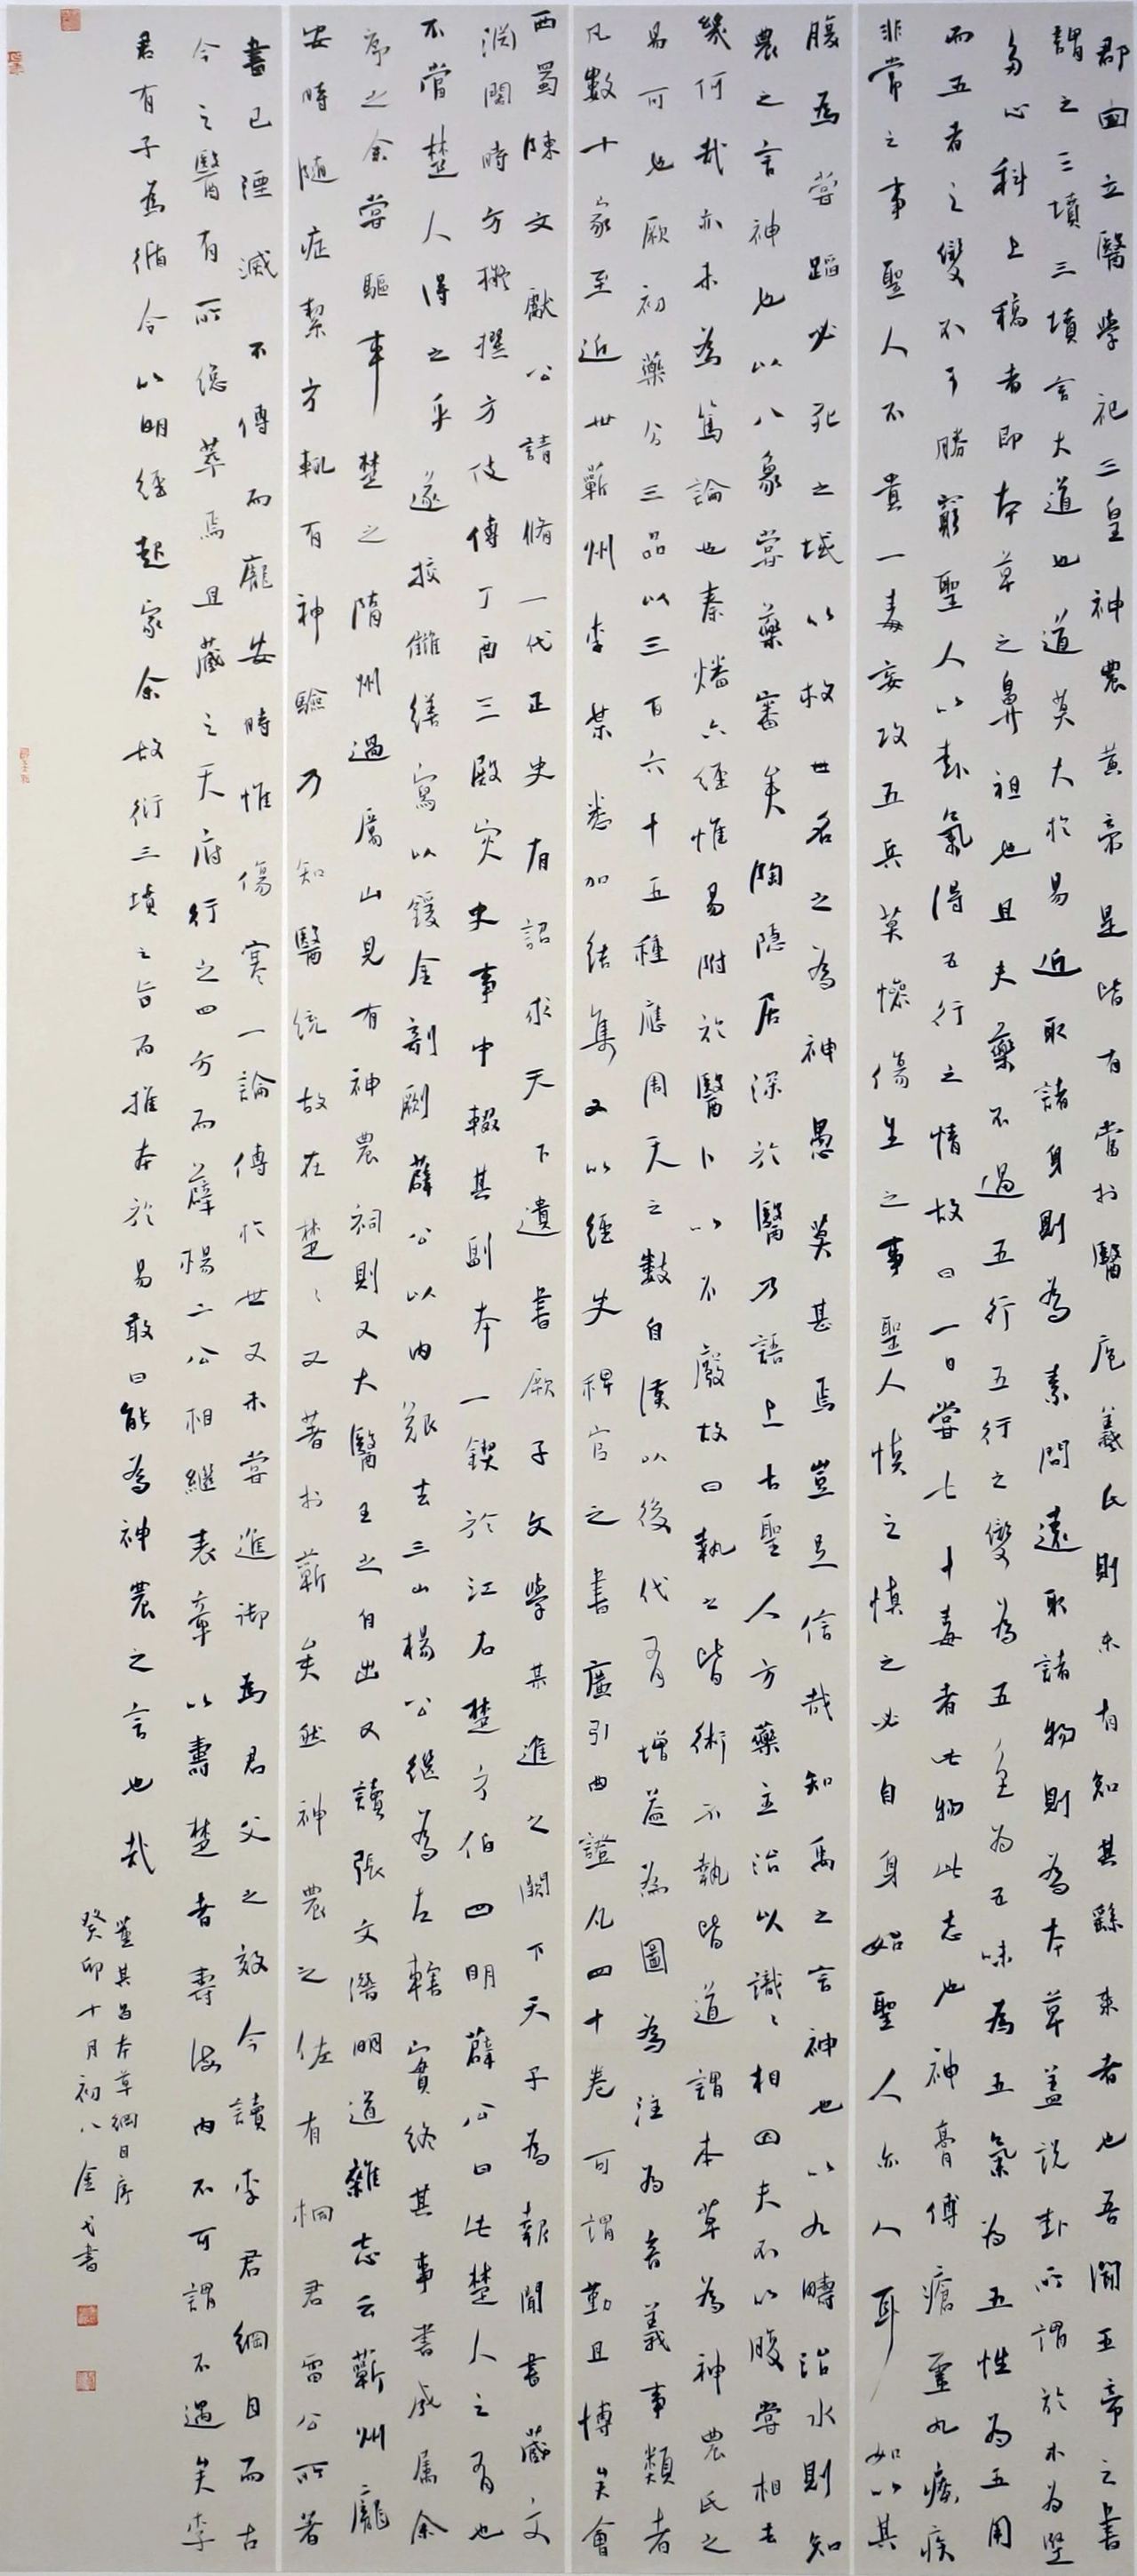 郡国立醫學祀三皇神農黃帝是皆有當於醫庖羲氏則未有知其繇來者也吾聞五帝之書
謂之三墳三墳言大道也道莫大於易近取諸身則為素問遠取諸物則為本草蓋說卦所謂於木為堅
多心科上稿者即本草之鼻祖也且夫藥不過五行五行之變為五色為五味為五氣為五性為五用
而五者之變不可勝窮聖人以卦氣得五行之情故曰一日嘗七十毒者此物此志也神膏傅瘡靈丸療疾
非常之事聖人不貴一毒妄攻五兵莫憯傷生之事聖人慎之慎之必自身始聖人亦人耳如以其
腹為嘗蹈必死之域以救世名之為神愚莫甚焉豈足信哉知禹之言神也以九疇治水則知
農之言神也以八象嘗藥審矣陶隱居深於醫乃語上古聖人方藥主治以識識相因夫不以腹嘗相去
幾何哉亦未為篤論也秦燔六經惟易附於醫卜以不廢故曰執之皆術不執皆道謂本草為神農氏之
易可也厥初藥分三品以三百六十五種應周天之數自漢以後代有增益為圖為注為音義事類者
凡數十家至近世蘄州李某悉加結集又以經史稗官之書廣引曲證凡四十卷可謂勤且博矣會
西蜀陳文獻公請脩一代正史有詔求天下遺書厥子文學某進之闕下天子為報聞書藏文
淵閣時方撫撰方伎傳丁酉三殿災史事中輟其副本一鍥於江右楚方伯四明薛公曰此楚人之有也
不當楚人得之乎遂挍讎繕寫以鍰金剞劂薛公以內艱去三山楊公繼為左轄實終其事書成屬余
序之余嘗驅車楚之隋州過厲山見有神農祠則又大醫王之自出又讀張文潛明道雜志云蘄州龐
安時隨症絜方輒有神驗乃知醫統故在楚楚又著於蘄矣然神農之佐有桐君雷公所著
書已湮滅不傳而龐安時惟傷寒一論傳於世又未嘗進御為君父之效今讀李君綱目而古
今之醫有所總萃焉且藏之天府行之四方而薛楊二公相繼表章以壽楚者壽海內不可謂不遇矣李
君有子為循令以明經起家余故衍三墳之旨而推本於易敢曰能為神農之言也哉
董其昌本草綱目序
癸卯十月初八金戈書